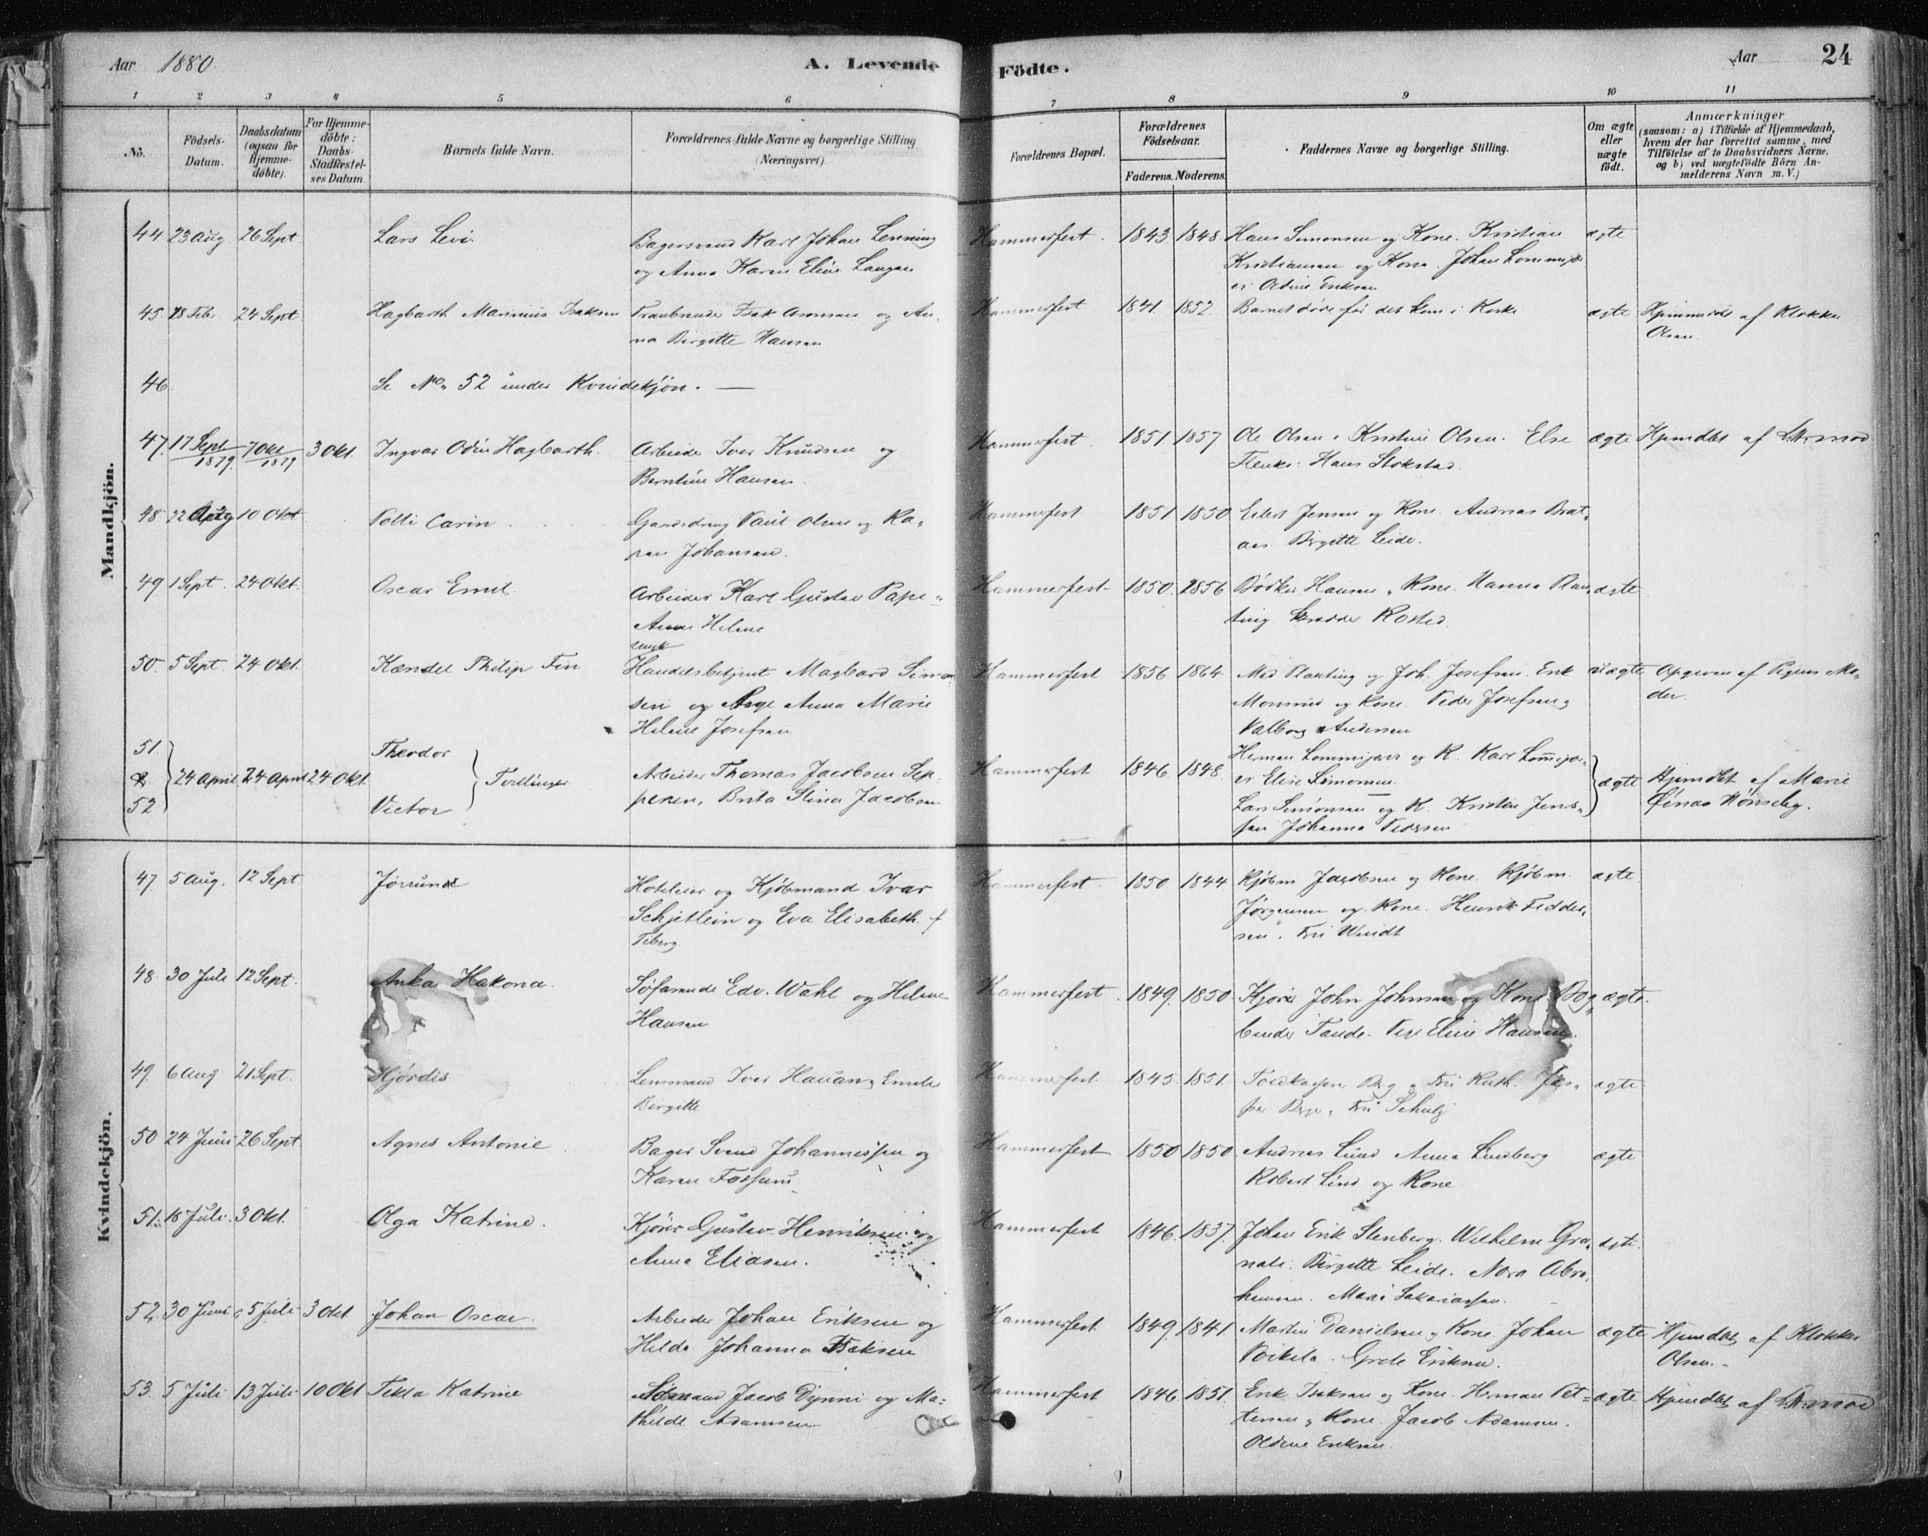 Aar 1880. A. Levende Födte. Aar 24
1 2 3 4 5 6 7 8 9 10 11
No. Födsels-Datum. Daabsdatum (ogsaa for Hjemme-döbte). For Hjemme-döbte: Daabs-Stadfæstel-ses Datum. Barnets fulde Navn. Forældrenes fulde Navne og borgerlige Stilling (Næringsvei). Forældrenes Bopæl. Forældrenes Födselsaar. Faderens. Moderens. Faddernes Navne og borgerlige Stilling. Om ægte eller uægte födt. Anmærkninger (saasom: a) i Tilfælde af Hjemmedaab, hvem der har forrettet samme, med Tilföielse af to Daabsvidners Navne, og b) ved uægtefödte Börn An-melderens Navn m. V.)
Mandkjön.
44 23 Aug 26 Sept Lars Levi Bagersvend Karl Johan Lenning Hammerfest. 1843 1848 Hans Simonsen og Kone. Kristian ægte
og Anna Karen Eline Langen Kristiansen og Kone. Johan
Eriksen
45. 28 Feb. 24 Sept Hagbarth Marinius Isaksen Isak Aronsen og An- Hammerfest 1841 1852 Barnet døde før det kom i Kirke ægte Hjemmedøbt af Klokker
na Birgitte Hansen Olsen.
46 Se No. 52 under Kvindekjön. —
47. 17 Sept 1879. 7 Okt 1879 3 Okt. Ingvar Odin Hagbarth. Arbeider Iver Knudsen og Hammerfest. 1851. 1857 Ole Olsen. Kristine Olsen. Else ægte Hjemdøbt af
Berntine Hansen. Hans Stokstad.
48 22 Aug 10 Okt Carin. Paul Olsen og Ka- Hammerfest 1851 1850 Eilert Jensen og Kone. Andreas Brat-
ren Johansen. aas Birgitte Leide.
49 1 Sept. 24 Okt. Oscar Emil. Arbeider Karl Gustav Pape Hammerfest 1850. 1856 Bødker Hansen, Kone. Hanna Plan- ægte
Anna Helene ting
50. 5 Sept. 24 Okt. Philip Fin Ungk Handelsbetjent Magbard Simon- Hammerfest 1856 1864 Mad Planting og Joh. Josefsen. Erik uægte Opgiven af Pigens Mo-
sen og Pige Anna Marie Monsrud og Kone. Peder Josefsen, der.
Helene Josefsen Valborg Andersen
51. & 52 24 April 24 April 24 Okt. Theodor Victor Tvillinger Arbeider Thomas Jacobsen Sep- Hammerfest 1846. 1848. Herman og K. Karl ægte Hjemdøbt af Marie
penen, Brita Stina Jacobsen Elise Simonsen
Lars Simonsen og K. Kristine Jens-
sen Johanna Pedersen
Kvindekjön.
47 5 Aug. 12 Sept Jørrund Hoteleier og Kjøbmand Ivar Hammerfest. 1850. 1844 Kjøbm. Jacobsen og Kone. Kjøbm. ægte
Schjetlein og Eva Elisabeth f. Jørgensen og Kone. Henrik Fedder-
Feberg sen. Fru Windt
48. 30 Juli 12 Sept. Anka Hakona. Søfarende Edv. Wahl og Helene Hammerfest. 1849. 1850. Kjører John Johnsen og Kone. Bog- ægte.
Hansen binder Tande. Eline Hansen.
49. 6 Aug 21 Sept. Hjørdis Lensmand Iver Hauan, Emelie Hammerfest. 1845 1851. Toldkasserer Berg, Fru Ruth. Jes- ægte
Birgitte per Berg, Fru Schulz
50 24 Juni 26 Sept Agnes Antonie. Bager Svend Johannessen og Hammerfest 1850 1850. Andreas Lind Anna Lindberg ægte
Karen Fossum Robert Lind og Kone
51. 18 Juli. 3 Okt. Olga Katrine. Kjører Gustav Henriksen og Hammerfest 1846. 1837. Johan Erik Stenberg. Wilhelm Gra- ægte.
Anna Eliasen. nati. Birgitte Leide. Nora Abra-
hamsen. Marie Sakariassen.
52. 30 Juni 5 Juli 3 Okt. Johan Oscar. Arbeider Johan Eriksen og Hammerfest. 1849. 1841. Martin Danielsen, Kone. Johan ægte Hjemdøbt af Klokker
Hilda Johanna Isaksen Grete Eriksen. Olsen.
53 5 Juli 13 Juli 10 Okt Tekla Katrine Sømand Jacob Dynni og Ma- Hammerfest 1846. 1851. Erik Isaksen og Kone. Herman Pet- ægte Hjemdøbt af
thilde Adamsen tersen, Kone. Jacob Adamsen.
Oldine Eriksen.